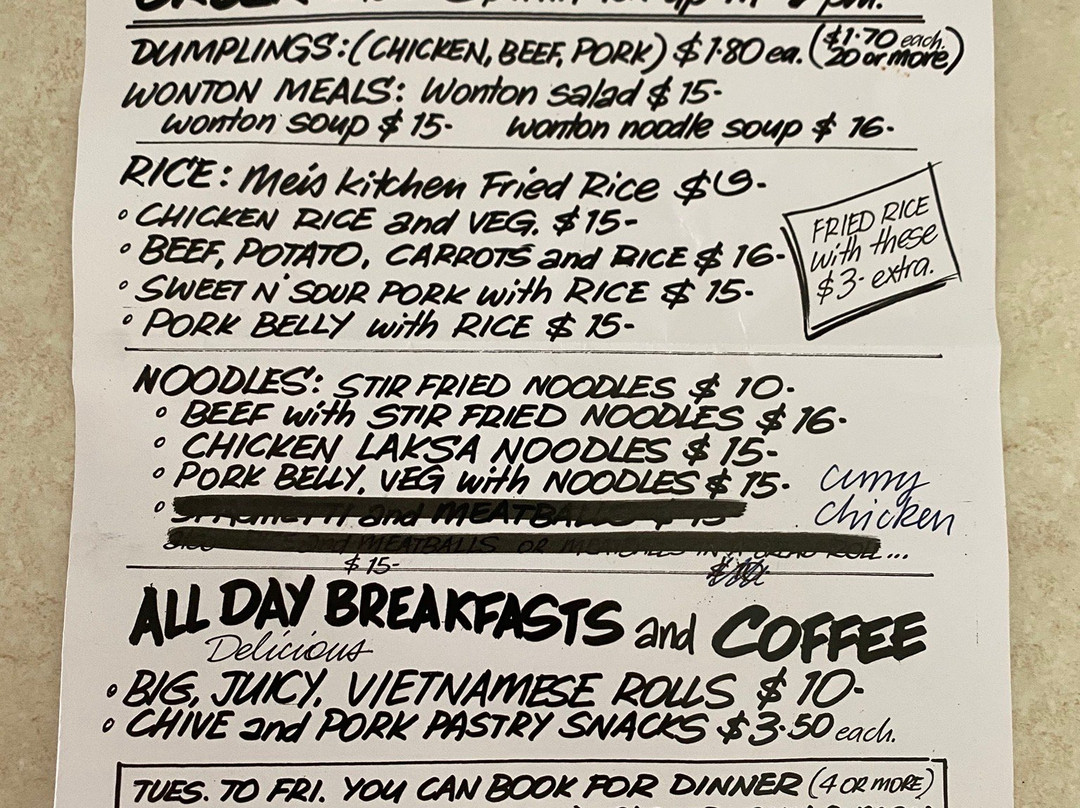 DUMPLINGS: (CHICKEN, BEEF, PORK) $1·80 ea. ($1·70 each. 20 or more)
WONTON MEALS: Wonton salad $15-
wonton soup $15- wonton noodle soup $16-
RICE: Meis kitchen Fried Rice
• CHICKEN RICE and VEG. $15-
• BEEF, POTATO, CARROTS and RICE $16-
• SWEET N' SOUR PORK with RICE $15-
• PORK BELLY with RICE $15-
FRIED RICE
with these
$3- extra.
NOODLES: STIR FRIED NOODLES $10-
• BEEF with STIR FRIED NOODLES $16-
• CHICKEN LAKSA NOODLES $15-
• PORK BELLY, VEG with NOODLES $15-
curry
chicken
• SPAGHETTI and MEATBALLS $15
and MEATBALLS OR MEATBALLS IN A BREAD ROLL...
$15-
ALL DAY BREAKFASTS and COFFEE
Delicious
• BIG, JUICY, VIETNAMESE ROLLS $10-
• CHIVE and PORK PASTRY SNACKS $3·50 each.
TUES. TO FRI. YOU CAN BOOK FOR DINNER (4 OR MORE)